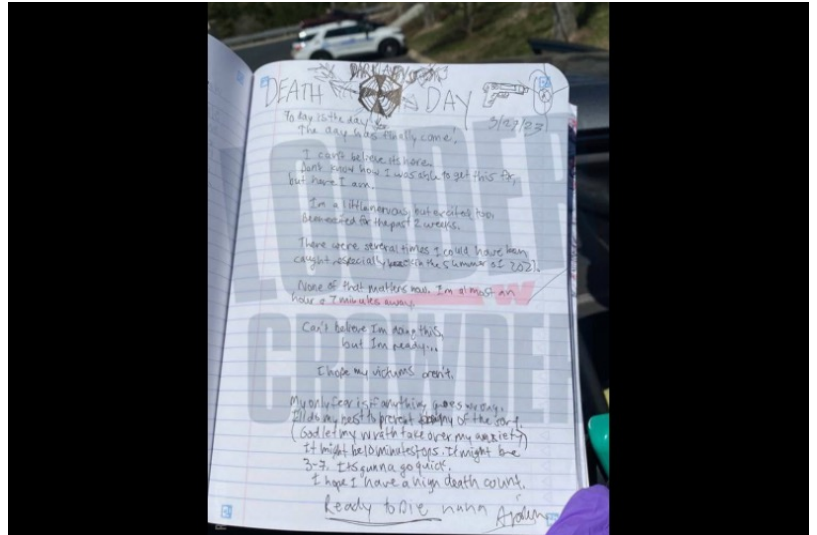 DARK ABYSS
DEATH DAY
3/27/23
Today is the day
The day has finally come!
I can't believe its here.
Don't know how I was able to get this far,
but here I am.
I'm a little nervous, but excited too.
Been excited for the past 2 weeks.
There were several times I could have been
caught, especially back in the summer of 2021.
None of that matters now. I'm almost an
hour & 7 minutes away.
Can't believe I'm doing this,
but I'm ready...
I hope my victims aren't.
My only fear is if anything goes wrong.
I'll do my best to prevent any of the sort.
(God let my wrath take over my anxiety)
It might be 10 minutes tops. It might be
3-7. Its gunna go quick.
I hope I have a high death count.
Ready to Die haha Aiden
LOUDER
W
CROWDER